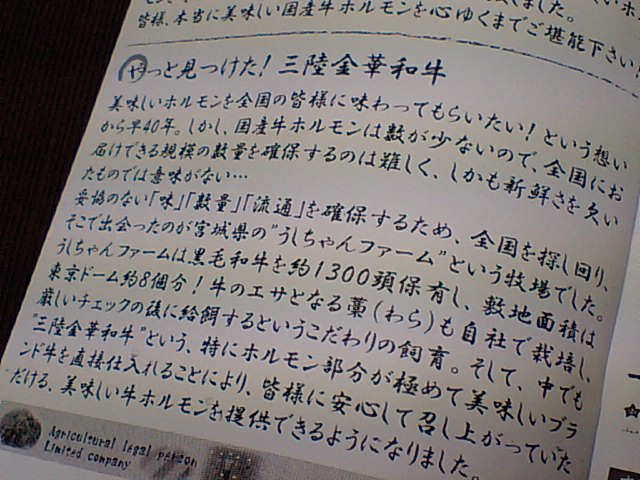 皆様、本当に美味しい国産牛ホルモンを心ゆくまでご堪能下さい!
やっと見つけた!三陸金華和牛
美味しいホルモンを全国の皆様に味わってもらいたい!という想い
から早40年。しかし、国産牛ホルモンは数が少ないので、全国にお
届けできる規模の数量を確保するのは難しく、しかも新鮮さを欠い
たものでは意味がない…
妥協のない「味」「数量」「流通」を確保するため、全国を探し回り、
そこで出会ったのが宮城県の"うしちゃんファーム"という牧場でした。
うしちゃんファームは黒毛和牛を約1300頭保有し、敷地面積は
東京ドーム約8個分!牛のエサとなる藁(わら)も自社で栽培し、
厳しいチェックの後に給餌するというこだわりの飼育。そして、中でも
"三陸金華和牛"という、特にホルモン部分が極めて美味しいブラ
ンド牛を直接仕入れることにより、皆様に安心して召し上がっていた
だける、美味しい牛ホルモンを提供できるようになりました。
Agricultural legal person
Limited company